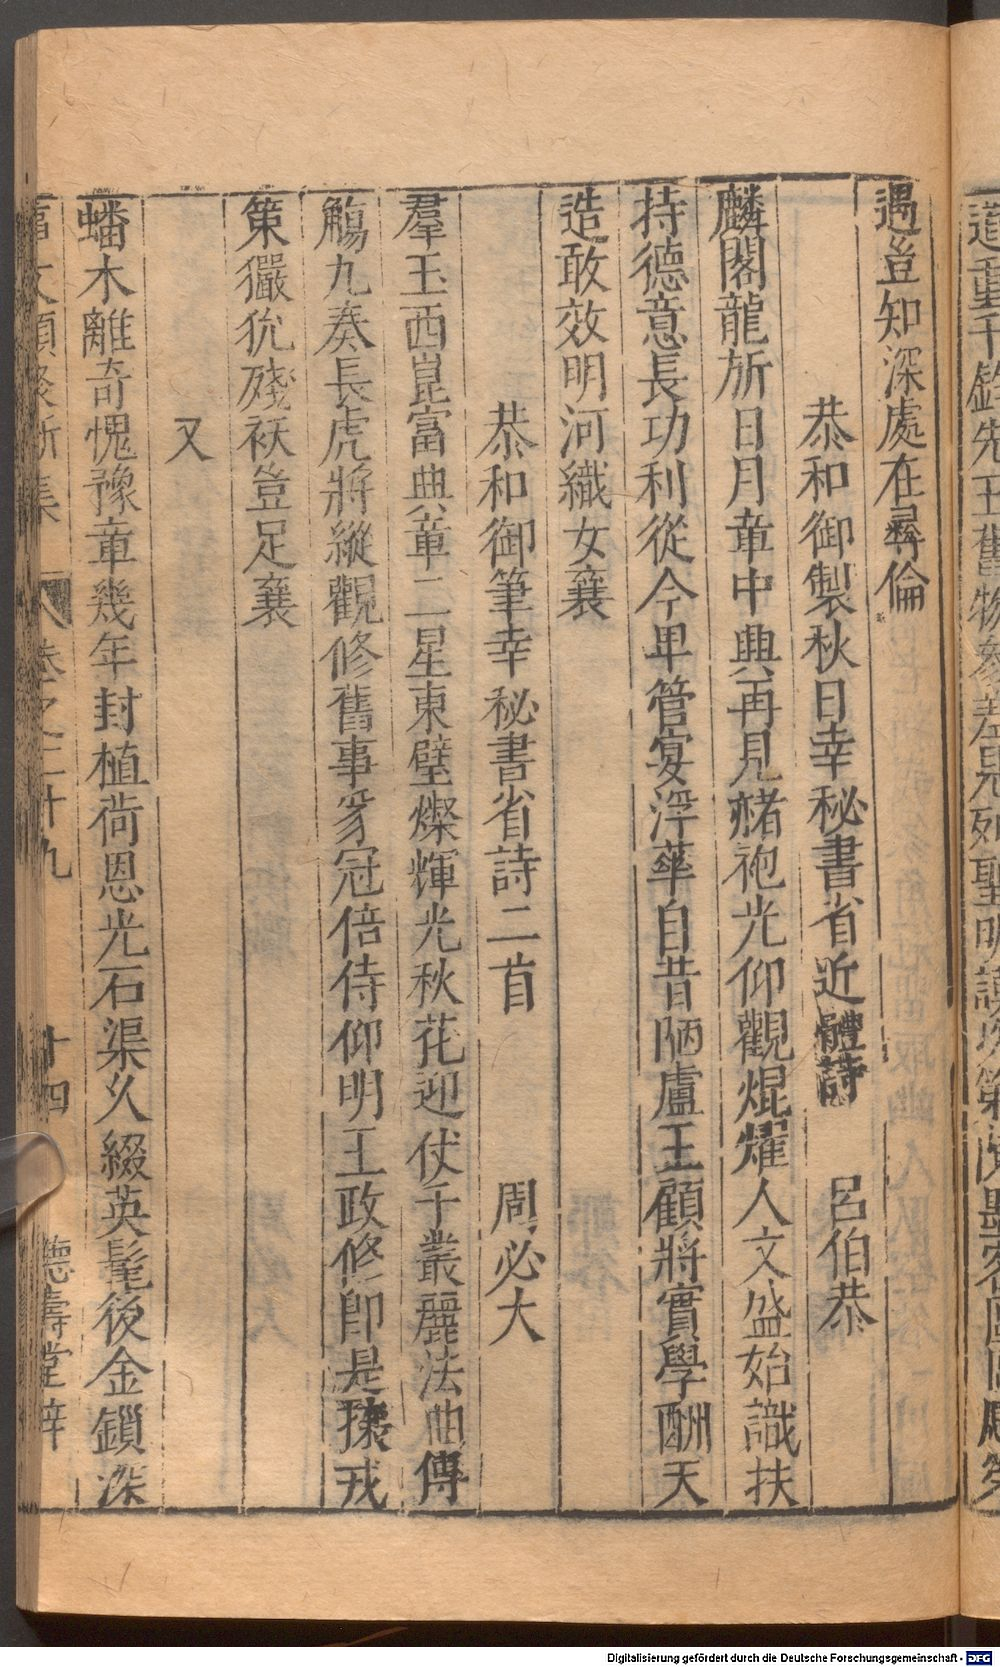 遇豈知深處在尋倫
恭和御製秋日幸秘書省近體詩 呂伯恭
麟閣龍旂日月章中興再見赭袍光仰觀焜燿人文盛始識扶
持德意長功利從今卑管宴浮華自昔陋盧王顧將實學酬天
造敢效明河織女襄
恭和御筆幸秘書省詩二首 周必大
羣玉西崑富典章二星東壁燦輝光秋花迎仗千叢麗法曲傳
觴九奏長虎將縱觀修舊事豸冠倍侍仰明王政修卽是攘戎
策玁狁殘袄豈足襄
又
蟠木離奇愧豫章幾年封植荷恩光石渠久綴英髦後金鎖深
文類聚新集 卷之二十九 十四 德壽堂梓
Digitalisierung gefördert durch die Deutsche Forschungsgemeinschaft - DFG